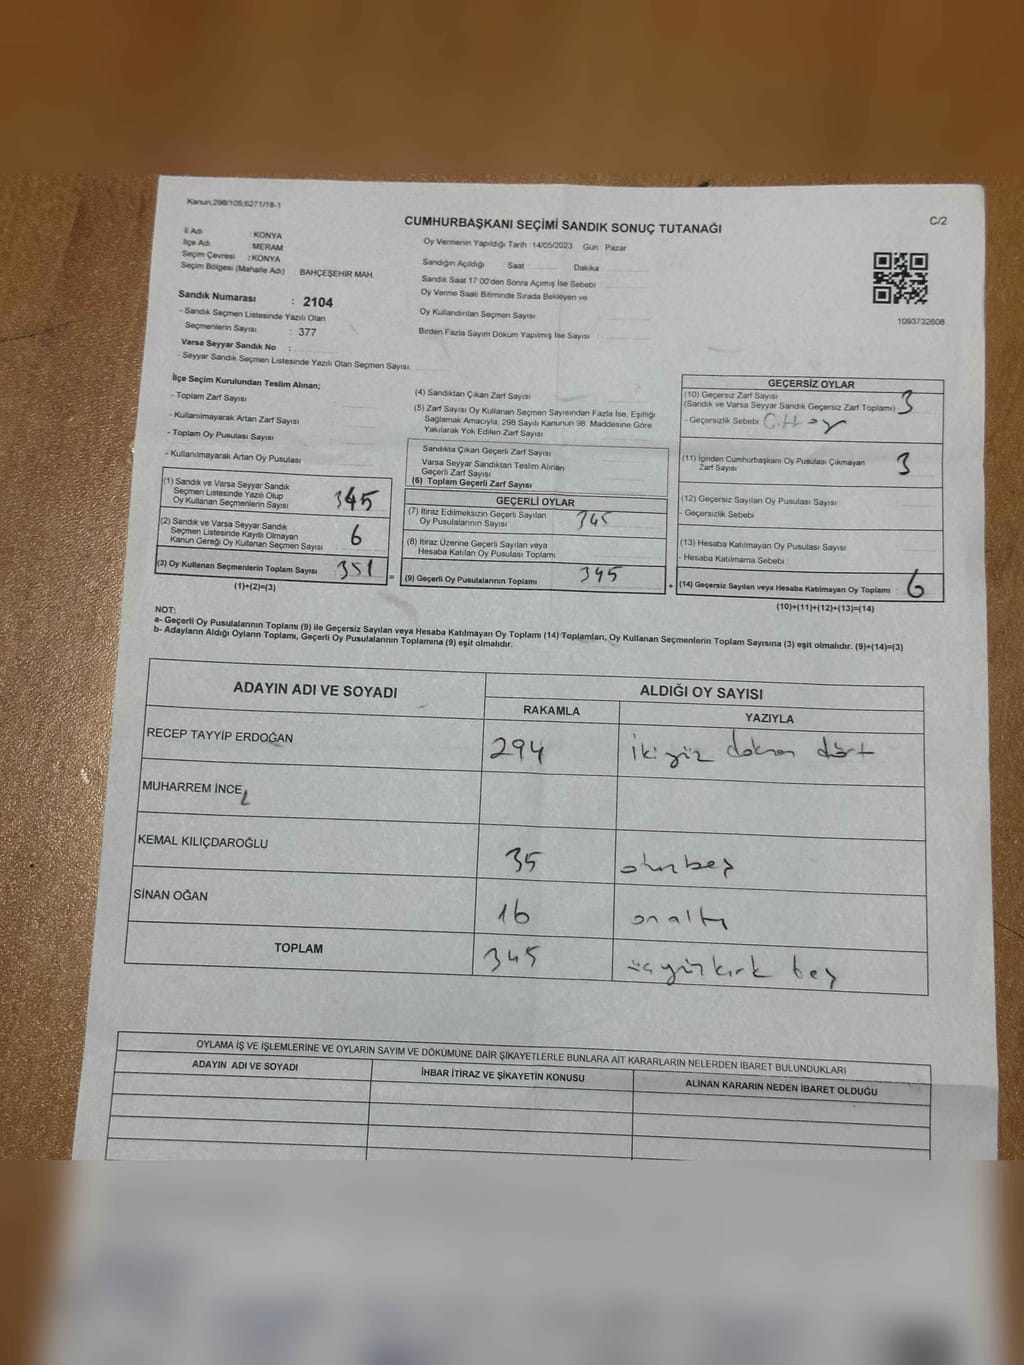 Kanun;298/105,6271/18-1
CUMHURBAŞKANI SEÇİMİ SANDIK SONUÇ TUTANAĞI
C/2
İl Adı : KONYA
İlçe Adı : MERAM
Seçim Çevresi : KONYA
Seçim Bölgesi (Mahalle Adı) BAHÇEŞEHİR MAH
Sandık Numarası : 2104
- Sandık Seçmen Listesinde Yazılı Olan
Seçmenlerin Sayısı : 377
Varsa Seyyar Sandık No :
- Seyyar Sandık Seçmen Listesinde Yazılı Olan Seçmen Sayısı
Oy Vermenin Yapıldığı Tarih : 14/05/2023 Gün Pazar
Sandığın Açıldığı Saat Dakika
Sandık Saat 17:00'den Sonra Açımış İse Sebebi
Oy Verme Saati Bitiminde Sırada Bekleyen ve
Oy Kullandırılan Seçmen Sayısı
Birden Fazla Sayım Döküm Yapılmış İse Sayısı
1093732608
İlçe Seçim Kurulundan Teslim Alınan;
- Toplam Zarf Sayısı
- Kullanılmayarak Artan Zarf Sayısı
- Toplam Oy Pusulası Sayısı
- Kullanılmayarak Artan Oy Pusulası
(1) Sandık ve Varsa Seyyar Sandık
Seçmen Listesinde Yazılı Olup
Oy Kullanan Seçmenlerin Sayısı 345
(2) Sandık ve Varsa Seyyar Sandık
Seçmen Listesinde Kayıtlı Olmayan
Kanun Gereği Oy Kullanan Seçmen Sayısı 6
(3) Oy Kullanan Seçmenlerin Toplam Sayısı 351
(1)+(2)=(3)
=
(4) Sandıktan Çıkan Zarf Sayısı
(5) Zarf Sayısı Oy Kullanan Seçmen Sayısından Fazla İse, Eşitliği
Sağlamak Amacıyla; 298 Sayılı Kanunun 98. Maddesine Göre
Yakılarak Yok Edilen Zarf Sayısı
Sandıkta Çıkan Geçerli Zarf Sayısı
Varsa Seyyar Sandıktan Teslim Alınan
Geçerli Zarf Sayısı
(6) Toplam Geçerli Zarf Sayısı
GEÇERLİ OYLAR
(7) İtiraz Edilmeksizin Geçerli Sayılan
Oy Pusulalarının Sayısı 345
(8) İtiraz Üzerine Geçerli Sayılan veya
Hesaba Katılan Oy Pusulası Toplamı
(9) Geçerli Oy Pusulalarının Toplamı 345
+
GEÇERSİZ OYLAR
(10) Geçersiz Zarf Sayısı
(Sandık ve Varsa Seyyar Sandık Geçersiz Zarf Toplamı) 3
- Geçersizlik Sebebi
(11) İçinden Cumhurbaşkanı Oy Pusulası Çıkmayan
Zarf Sayısı 3
(12) Geçersiz Sayılan Oy Pusulası Sayısı
- Geçersizlik Sebebi
(13) Hesaba Katılmayan Oy Pusulası Sayısı
- Hesaba Katılmama Sebebi
(14) Geçersiz Sayılan veya Hesaba Katılmayan Oy Toplamı 6
(10)+(11)+(12)+(13)=(14)
NOT:
a- Geçerli Oy Pusulalarının Toplamı (9) ile Geçersiz Sayılan veya Hesaba Katılmayan Oy Toplamı (14) Toplamları, Oy Kullanan Seçmenlerin Toplam Sayısına (3) eşit olmalıdır. (9)+(14)=(3)
b- Adayların Aldığı Oyların Toplamı, Geçerli Oy Pusulalarının Toplamına (9) eşit olmalıdır.
ADAYIN ADI VE SOYADI
ALDIĞI OY SAYISI
RAKAMLA YAZIYLA
RECEP TAYYİP ERDOĞAN 294 ikiyüz doksan dört
MUHARREM İNCE
KEMAL KILIÇDAROĞLU 35 otuzbeş
SİNAN OĞAN 16 onaltı
TOPLAM 345 üçyüzkırk beş
OYLAMA İŞ VE İŞLEMLERİNE VE OYLARIN SAYIM VE DÖKÜMÜNE DAİR ŞİKAYETLERLE BUNLARA AİT KARARLARIN NELERDEN İBARET BULUNDUKLARI
ADAYIN ADI VE SOYADI İHBAR İTİRAZ VE ŞİKAYETİN KONUSU ALINAN KARARIN NEDEN İBARET OLDUĞU